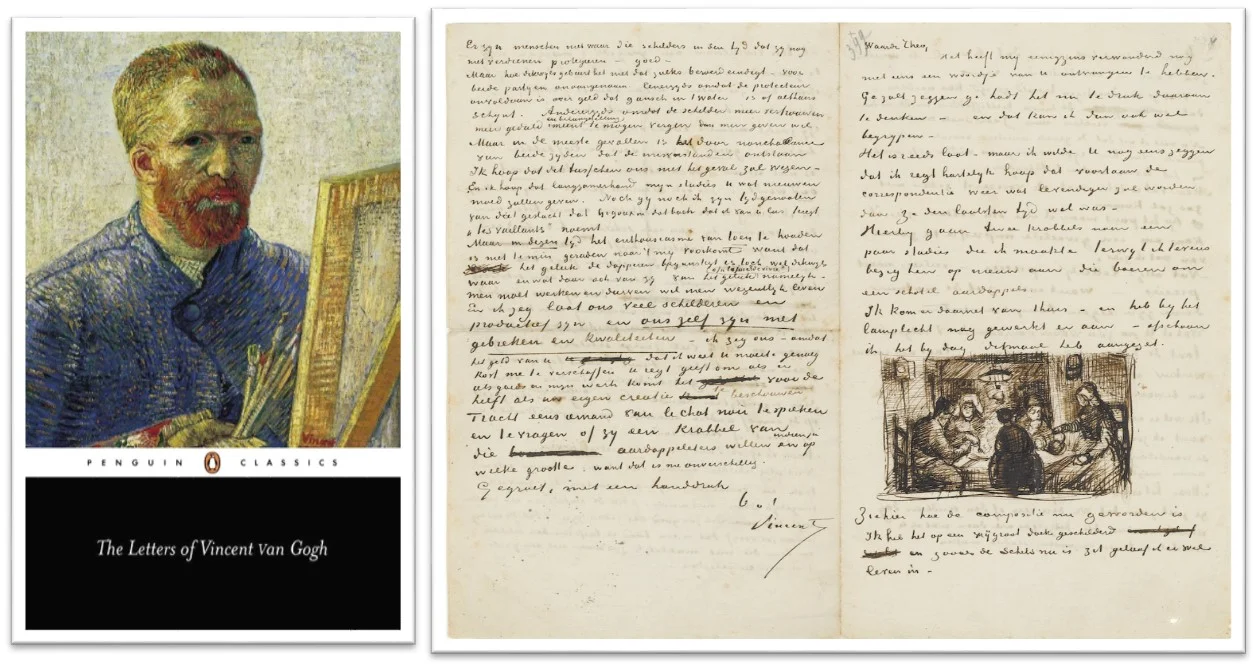 PENGUIN CLASSICS
The Letters of Vincent van Gogh
Er zyn menschen niet waar die schilders in den tyd dat zy nog
niet verdienen protegeren – goed –
Maar hoe dikwyls gebeurt het niet dat zulks beroerd eindigt – voor
beide partyen onaangenaam. Eenerzyds omdat de protecteur
onvoldaan is over geld dat gansch in 't water is of althans
schynt. Anderzyds omdat de schilder meer vertrouwen
meer geduld en belangstelling te mogen vergen dan men geven wil.
Maar in de meeste gevallen is het door nonchalance
van beide zyden dat de misverstanden ontstaan
Ik hoop dat het tusschen ons niet het geval zal wezen –
En ik hoop dat langzamerhand myn studies u wat nieuwen
moed zullen geven. Noch gy noch ik zyn tydgenooten
van dat geslacht dat Gigoux in dat boek dat ik van u las
„les vaillants" noemt
Maar in dezen tyd het enthousiasme van toen te houden
is niet temin geraden naar 't my voorkomt want dat
het geluk de dapperen begunstigt is toch wel dikwyls
waar en wat daar ook van zy van het geluk namelyk –
men moet werken en durven wil men wezenlyk leven
En ik zeg laat ons veel schilderen en
productief zyn en ons zelf zyn met
gebreken en kwaliteiten – ik zeg ons – omdat
het geld van u dat ik weet u moeite genoeg
kost me te verschaffen u regt geeft om als er
iets goeds in myn werk komt het voor de
helft als uw eigen creatie te beschouwen
Tracht eens iemand van le chat noir te spreken
en te vragen of zy een krabbel van
die aardappeleters willen en op
welke grootte, want dat is me onverschillig.
Gegroet, met een handdruk
b.à.t.
Vincent
Waarde Theo,
Het heeft my eenigzins verwonderd nog
niet eens een woordje van u ontvangen te hebben.
Ge zult zeggen ge hadt het nu te druk daaraan
te denken – en dat kan ik dan ook wel
begrypen –
Het is reeds laat – maar ik wilde u nog eens zeggen
dat ik regt hartelyk hoop dat voortaan de
correspondentie weer wat levendiger zal worden
dan ze den laatsten tyd wel was –
Hierby gaan twee krabbels naar een
paar studies die ik maakte terwyl ik tevens
bezig ben op nieuw aan die boeren om
een schotel aardappels
Ik kom er daarnet van thuis – en heb by het
lamplicht nog gewerkt er aan – ofschoon
ik het by dag ditmaal heb aangezet.
Ziehier hoe de compositie nu geworden is
Ik heb het op een vrij groot doek geschilderd
en zooals de schets nu is zit geloof ik er wel
leven in –